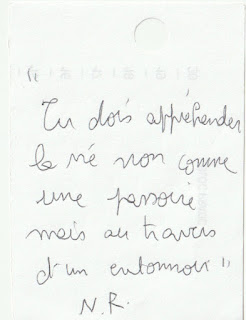 "
Tu dois appréhender
la vie non comme
une passoire
mais au travers
d'un entonnoir "
N.R.